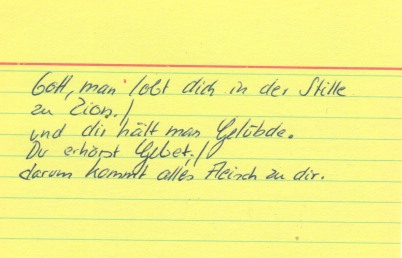 Gott, man lobt dich in der Stille
zu Zion,/
und dir hält man Gelübde.
Du erhörst Gebet;/
darum kommt alles Fleisch zu dir.